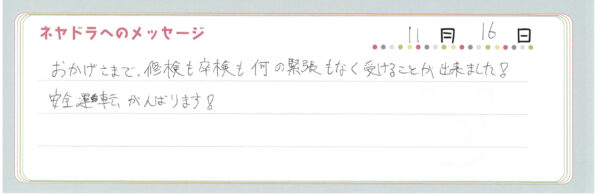 ネヤドラへのメッセージ
11月16日
おかげさまで、修検も卒検も何の緊張もなく受けることが出来ました!
安全運転がんばります!